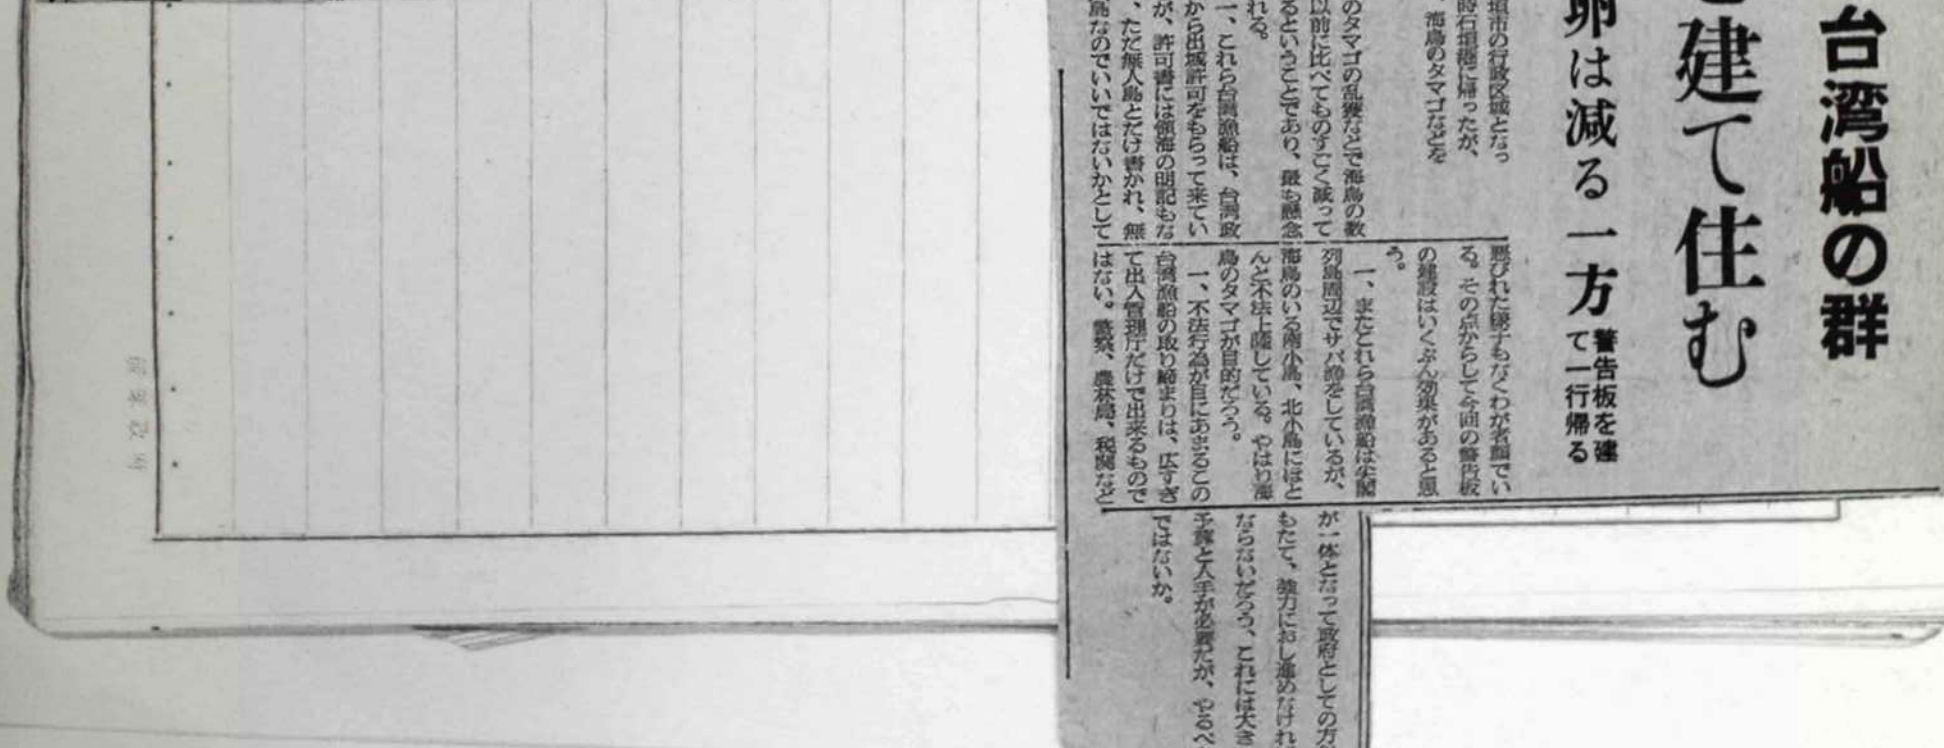 台湾船の群
建て住む
卵は減る一方
警告板を建
て一行帰る
垣市の行政区域となっ
時石垣港に帰ったが、
海鳥のタマゴなどを
のタマゴの乱獲などで海鳥の数
以前に比べてものすごく減って
るということであり、最も懸念
れる。
一、これら台湾漁船は、台湾政
から出域許可をもらって来てい
が、許可書には領海の明記もな
、ただ無人島とだけ書かれ、無
島なのでいいではないかとして
悪びれた様子もなくわが者顔でい
る。その点からして今回の警告板
の建設はいくぶん効果があると思
う。
一、またこれら台湾漁船は尖閣
列島周辺でサバ漁をしているが、
海鳥のいる南小島、北小島にほと
んと不法上陸している。やはり海
鳥のタマゴが目的だろう。
一、不法行為が目にあまるこの
台湾漁船の取り締まりは、広すぎ
て出入管理庁だけで出来るもので
はない。警察、農林局、税関など
が一体となって政府としての方
もたて、強力におし進めなけれ
ならないだろう、これには大き
予算と人手が必要だが、やるべ
ではないか。